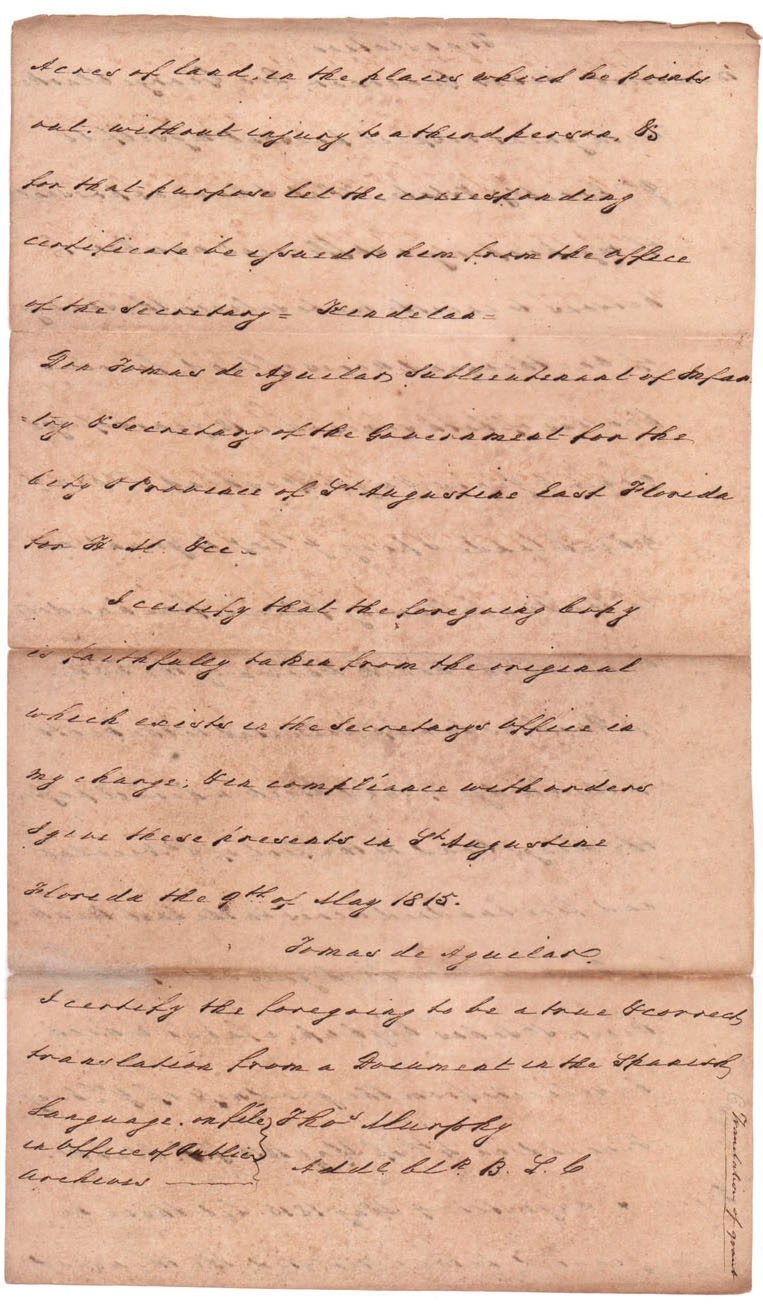 Acres of land, in the places which he points
out. without injury to a third person. &
for that purpose let the corresponding
certificate be issued to him from the office
of the Secretary = Kindelan =
Don Tomas de Aguilar, Sublieutenant of Infan
-try & Secretary of the Government for the
City & Province of St Augustine East Florida
for H. M. &cc -
I certify that the foregoing Copy
is faithfully taken from the original
which exists in the Secretarys office in
my charge. & in compliance with orders
I give these presents in St Augustine
Florida the 9th of May 1815.
Tomas de Aguilar.
I certify the foregoing to be a true & correct
translation from a Document in the Spanish
Language. on file
in office of Public
Archives
Thos Murphy
Addl Clk B. L. C
Translation of grant